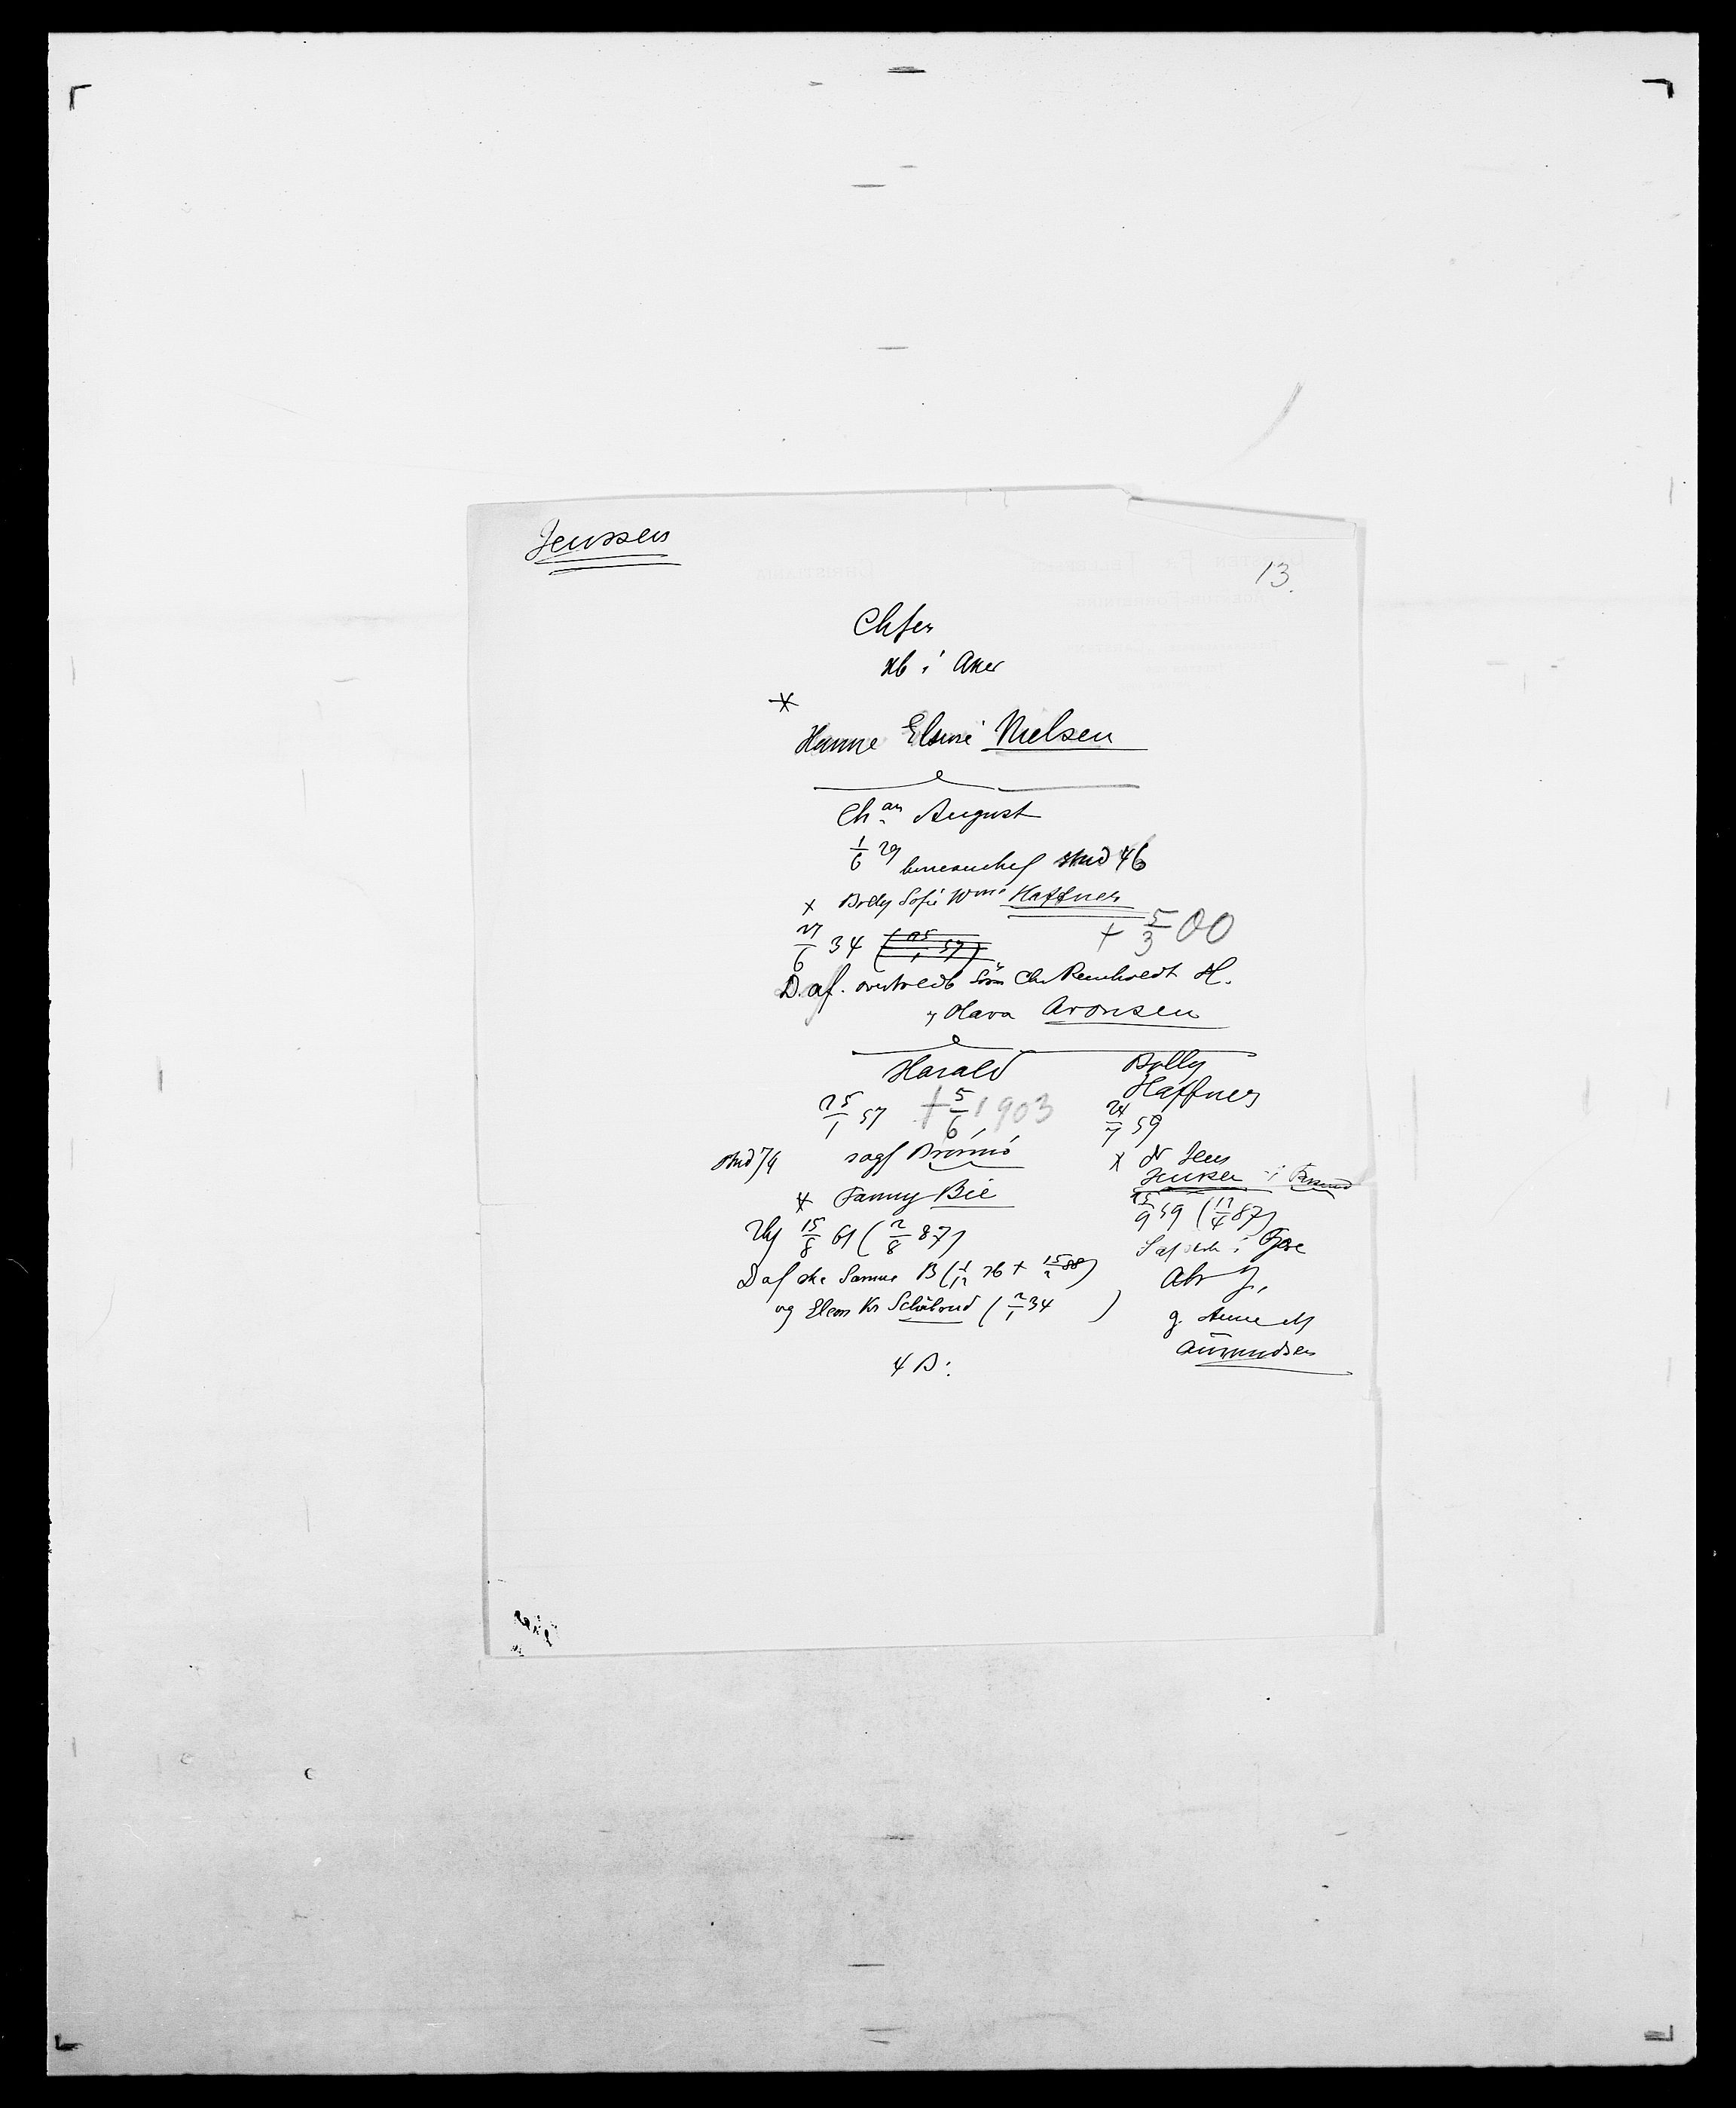 Jenssen
13.
Chfer
kb i Aker
×
Hanne Elmine Nielsen
Chan August
1/6 29 bureauchef stud 46
× Bolly Sofie Wmine Haffner
27/6 34 (25/1 57) + 5/3 00
D. af. overtoldb Sören Chr Reinholdt H.
og Olava Aronsen
Harald
25/1 57 + 5/6 1903
stud 74 sagf Brönnö
× Fanny Bie
Vlg 15/8 61 (2/8 87)
D af skr Samue B (1/12 26 + 15/2 88)
og Elen Kr Schölund (2/1 34 )
4 B:
Bolly
Haffner
24/7 59
× dr Jens
Jenssen i
15/9 59 (12/4 87)
S af i
Abr J,
g. Anne M
Aamundsen